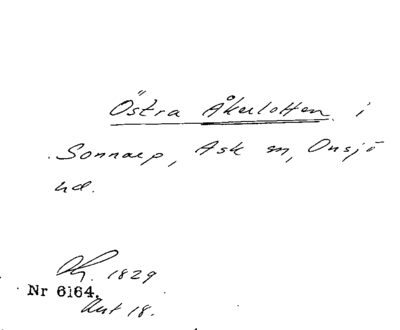 Östra Åkerlotten i
Sonnarp, Ask sn, Onsjö
hd.
Lh. 1829
Nr 6164.
Akt 18.